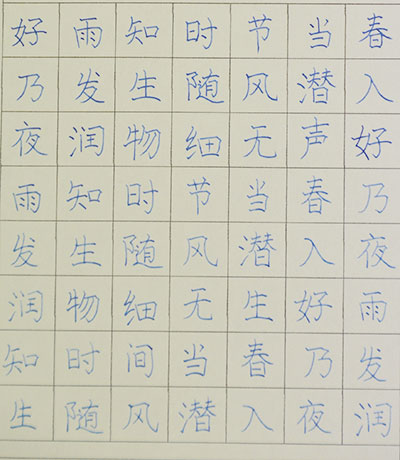 好雨知时节当春
乃发生随风潜入
夜润物细无声好
雨知时节当春乃
发生随风潜入夜
润物细无生好雨
知时间当春乃发
生随风潜入夜润